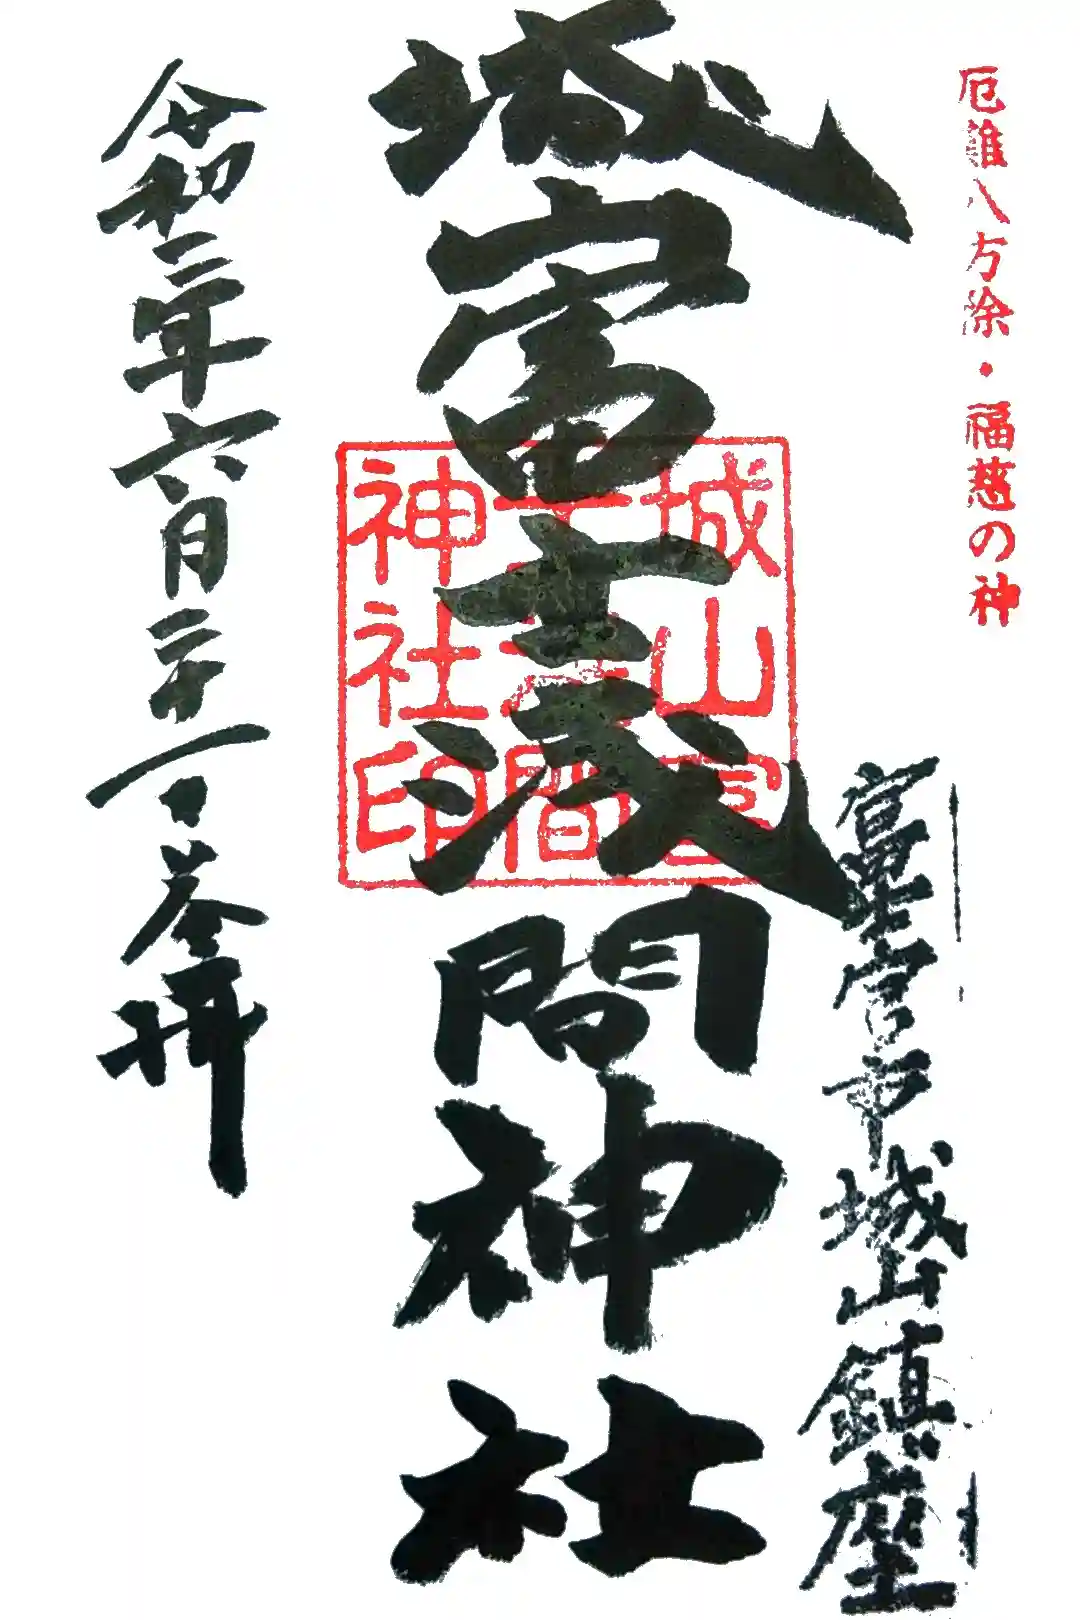 厄難八方除・福慈の神
富士宮市城山鎮座
城山富士浅間神社
城山富
士浅間
神社印
令和二年六月二十一日参拝